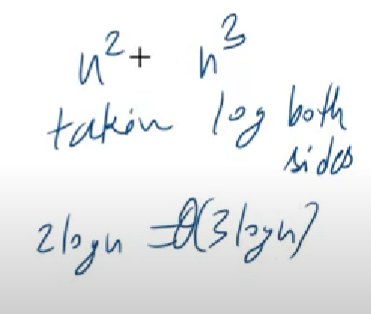 n² + n³
taken log both
sides
2logn = θ(3logn)